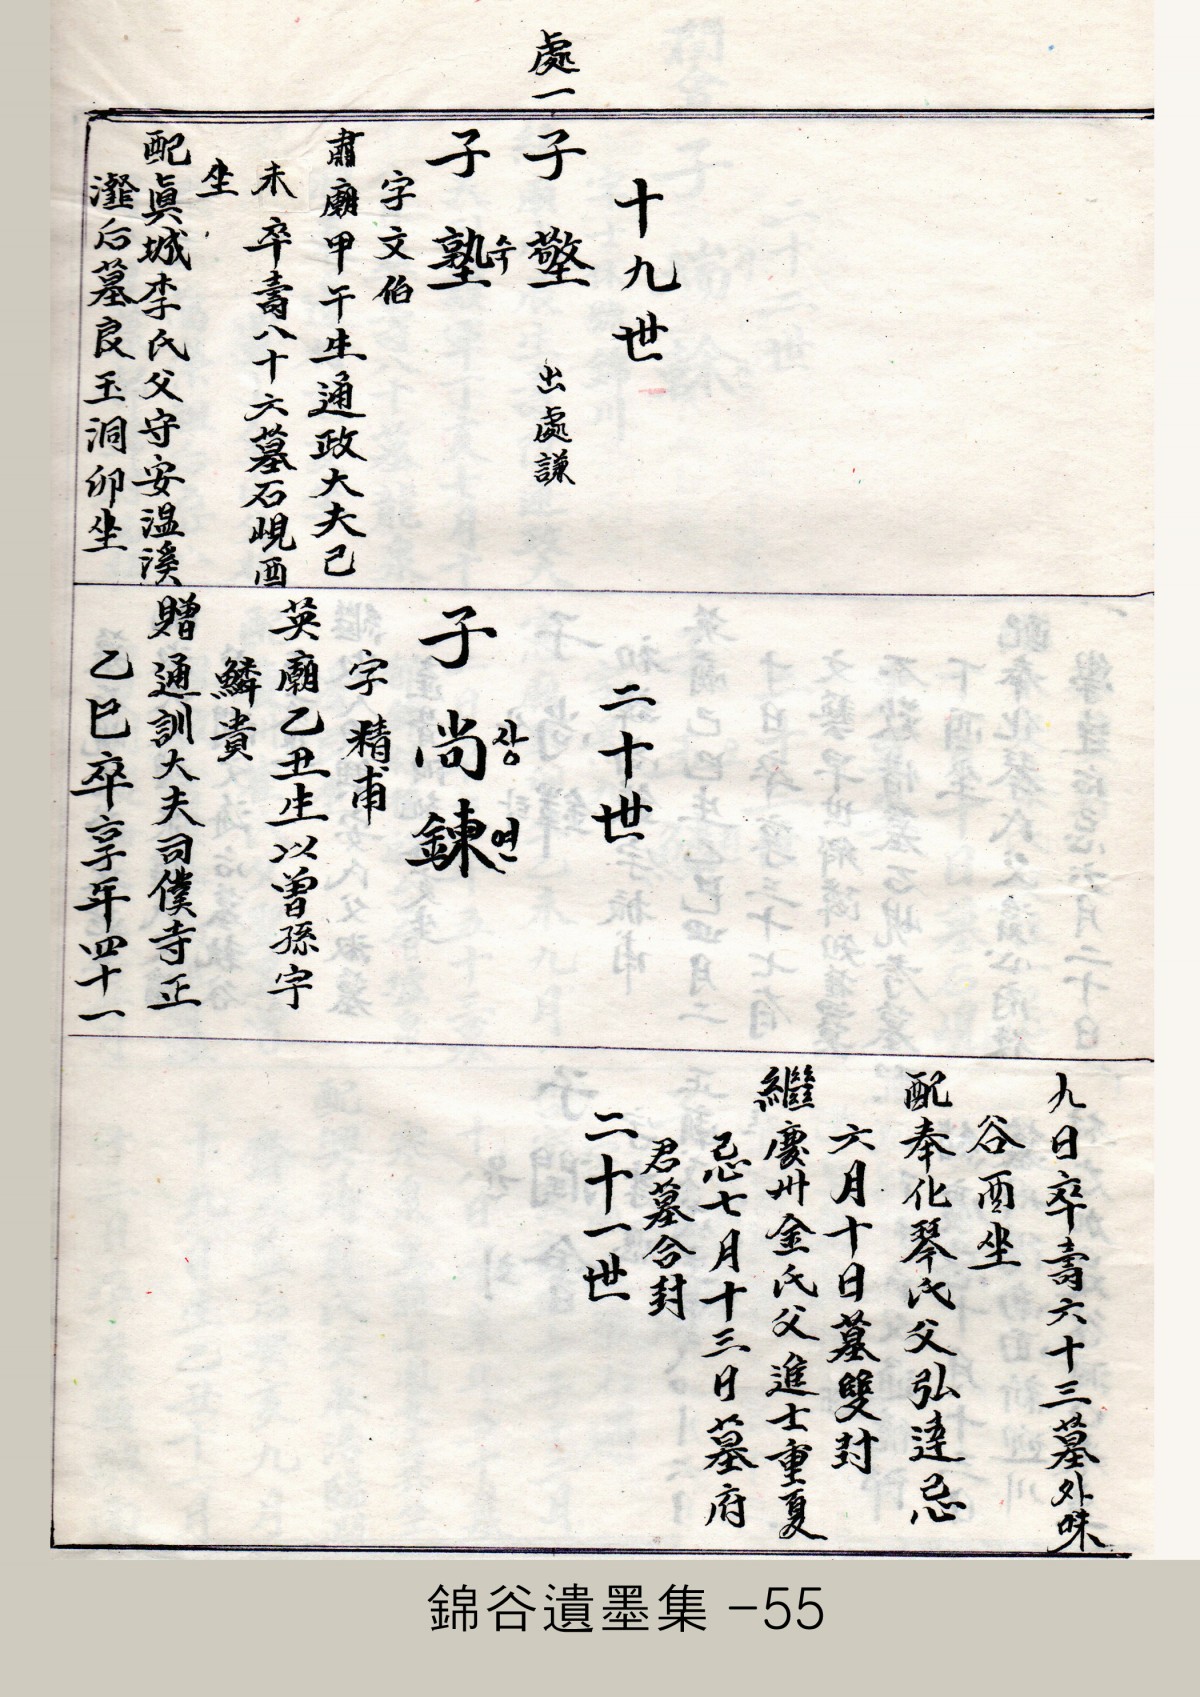 處一
十九世
子 墪 出處謙
子 塾 숙
字文伯
肅廟甲午生通政大夫己
未卒壽八十六墓石峴酉
坐
配眞城李氏父守安溫溪
瀣后墓良玉洞卯坐
二十世
子尚鍊 상 연
字精甫
英廟乙丑生以曾孫字
鱗貴
贈通訓大夫司僕寺正
乙巳卒享年四十一
九日卒壽六十三墓外味
谷酉坐
配奉化琴氏父弘達忌
六月十日墓雙封
繼慶州金氏父進士重夏
忌七月十三日墓府
君墓合封
二十一世
錦谷遺墨集 -55